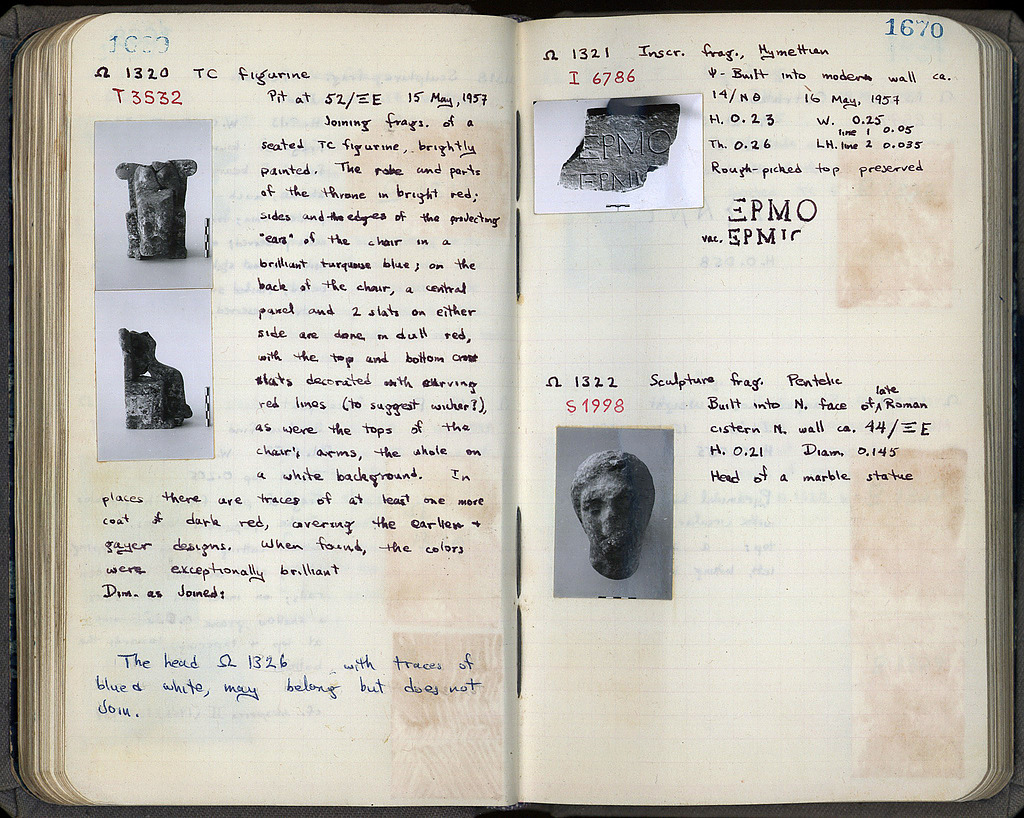 1669
Ω 1320 TC figurine
T 3532
Pit at 52/ΞΕ 15 May, 1957
Joining frags. of a
seated TC figurine, brightly
painted. The robe and parts
of the throne in bright red;
sides and the edges of the projecting
"ears" of the chair in a
brilliant turquoise blue; on the
back of the chair, a central
panel and 2 slats on either
side are done in dull red,
with the top and bottom cross
slats decorated with curving
red lines (to suggest wicker?),
as were the tops of the
chair's arms, the whole on
a white background. In
places there are traces of at least one more
coat of dark red, covering the earlier +
gayer designs. When found, the colors
were exceptionally brilliant
Dim. as Joined:
The head Ω 1326 with traces of
blue & white, may belong but does not
Join.
1670
Ω 1321 Inscr. frag., Hymettian
I 6786
Ψ - Built into modern wall ca.
14/ΝΘ 16 May, 1957
H. 0.23 W. 0.25
Th. 0.26 LH. line 1 0.05
line 2 0.035
Rough-picked top preserved
ΕΡΜΟ
ΕΡΜΙ
ΕΡΜΟ
vac. ΕΡΜΙ
Ω 1322 Sculpture frag. Pentelic
S 1998
Built into N. face of late Roman
cistern N. wall ca. 44/ΞΕ
H. 0.21 Diam. 0.145
Head of a marble statue